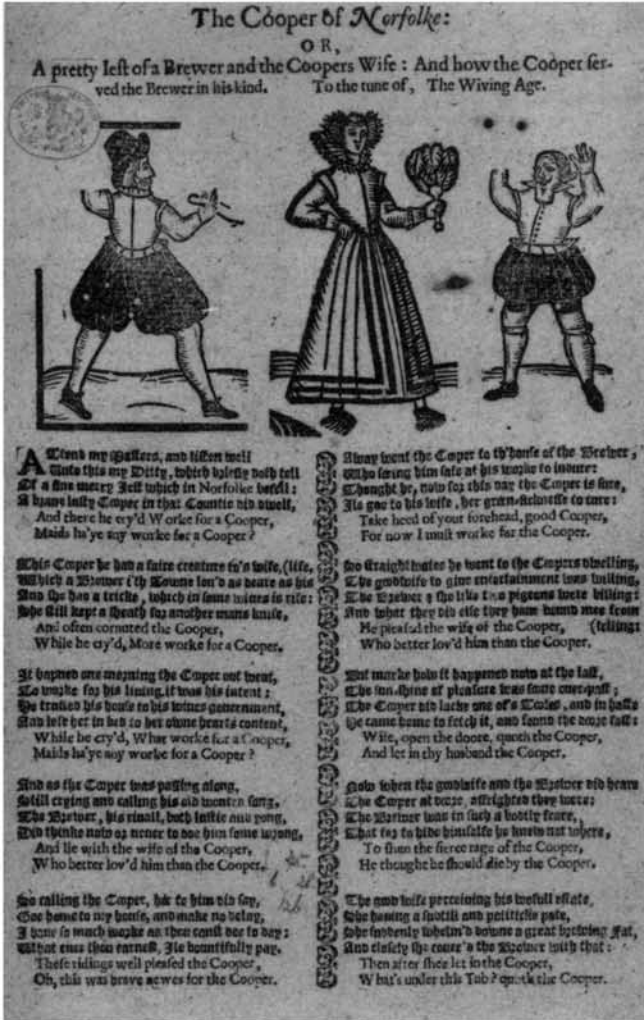 The Cooper of Norfolke:
OR,
A pretty Iest of a Brewer and the Coopers Wife : And how the Cooper ser-
ved the Brewer in his kind. To the tune of, The Wiving Age.
ATtend my Masters, and listen well
Unto this my Ditty, which briefly doth tell
Of a fine merry Jest which in Norfolke befell:
A brave lusty Cooper in that Countie did dwell,
And there he cry'd Worke for a Cooper,
Maids ha'ye any worke for a Cooper?
This Cooper he had a faire creature to's wife, (life,
Which a Brewer i'th Towne lov'd as deare as his
And she had a tricke, which in some wives is rife:
She still kept a sheath for another mans knife,
And often cornuted the Cooper,
While he cry'd, More worke for a Cooper.
It hapned one morning the Cooper out went,
To worke for his living, it was his intent:
He trusted his house to his wives government,
And left her in bed to her owne hearts content,
While he cry'd, What worke for a Cooper,
Maids ha'ye any worke for a Cooper?
And as the Cooper was passing along,
Still crying and calling his old wonted song,
The Brewer, his rivall, both lustie and yong,
Did thinke now or never to doe him some wrong,
And lie with the wife of the Cooper,
Who better lov'd him than the Cooper.
So calling the Cooper, he to him did say,
Goe home to my house, and make no delay,
I have so much worke as thou canst doe to day:
What ever thou earnest, Ile bountifully pay.
These tidings well pleased the Cooper,
Oh, this was brave newes for the Cooper.
Away went the Cooper to th'house of the Brewer,
Who seeing him safe at his worke to indure:
Thought he, now for this day the Cooper is sure,
Ile goe to his wife, her green-sicknesse to cure:
Take heed of your forehead, good Cooper,
For now I must worke for the Cooper.
So straightwaies he went to the Coopers dwelling,
The goodwife to give entertainment was willing,
The Brewer & she like two pigeons were billing:
And what they did else they have bound mee from
He pleased the wife of the Cooper, (telling:
Who better lov'd him than the Cooper.
But marke how it happened now at the last,
The sun-shine of pleasure was soone over-past;
The Cooper did lacke one of's Tooles, and in haste
He came home to fetch it, and found the doore fast:
Wife, open the doore, quoth the Cooper,
And let in thy husband the Cooper.
Now when the goodwife and the Brewer did heare
The Cooper at doore, affrighted they were:
The Brewer was in such a bodily feare,
That for to hide himselfe he knew not where,
To shun the fierce rage of the Cooper,
He thought he should die by the Cooper.
The good wife perceiving his wofull estate,
She having a subtill and politicke pate,
She suddenly whelm'd downe a great brewing Fat,
And closely she cover'd the Brewer with that:
Then after shee let in the Cooper,
What's under this Tub? quoth the Cooper.